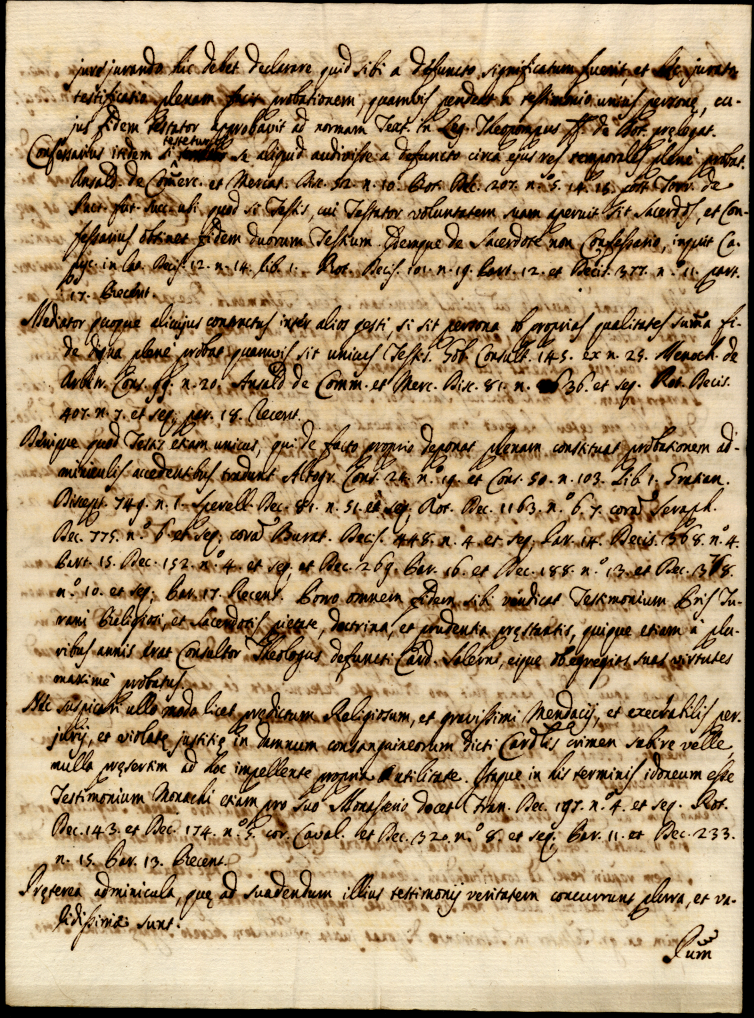 jure jurando hic debet declarare quid sibi a defuncto significatum fuerit, et hęc jurata
testificatio plenam facit probationem, quamvis pendeat a testimonio unius personę, cu-
jus fidem testator approbavit ad normam Text. in Leg. Theopompus ff. de Dot. pręlegat.
Confessarius itidem si testetur se aliquid audivisse a defuncto circa ejus res temporales plenè probat.
Ansald. de Comerc. et Mercat. Disc. 32. n. 10. Rot. Dec. 207. n.º 5. 14. 15. cor.
fact. quod si Testis, cui Testator voluntatem suam aperuit sit Sacerdos, et Con-
fessarius obtinet fidem duorum Testium. Idemque de Sacerdote non Confessario, inquit Ca-
pyc. in Decis. 12. n. 14. lib. 1. Rot. Decis. 101. n. 19. part. 12. et Decis. 377. n. 11. part.
17. Recent.
Mediator quoque alicujus contractus inter alios gesti, si sit persona ob proprias qualitates suma fi-
de digna plenè probat quamvis sit unicus Testis. Gob. Consult. 145. ex n. 25. Menoch. de
Arbitr. Cons. 99. n. 20. Ansald de Comm. et Merc. Disc. 81. n. 36. et seq. Rot. Decis.
407. n. 7. et seq. par. 18. Recent.
Denique quod Testis etiam unicus, qui de facto proprio deponat plenam constituat probationem ad-
miniculis accedentibus tradunt Altogr. Cons. 24. n.º 19. et Cons. 50. n. 103. Lib. 1. Gratian.
Discept. 749. n. 1. Dec. 81. n. 51. et seq. Rot. Dec. 1163. n.º 6. 7. corā Seraph.
Dec. 775. n.º 6. et seq. corā Burat. Decis. 448. n. 4. et seq. par. 14. Decis. 568. n.º 4.
Part. 15. Dec. 152. n.º 4. et seq. et Dec. 269. Par. 16. et Dec. 188. n.º 13. et Dec. 378.
n.º 10. et seq. Par. 17. Recent. Porro omnem fidem sibi vindicat Testimonium Pris Ju-
rani Religiosi, et Sacerdotis pietate, doctrina, et prudentia pręstantis, quique etiam à plu-
ribus annis erat Consultor Theologus defuncti Card. Salerni, eique ob egregias suas virtutes
maximè probatus.
Nec suspicari ullo modo licet prędictum Religiosum, et gravissimi Mendacij, et execrabilis per-
jurij, et violatę justitię in damnum consanguineorum dicti Cardlis crimen subire velle
nulla pręsertim ad hoc impellente propria utilitate. Itaque in his terminis idoneum esse
Testimonium Monachi etiam pro suo Monasterio docet Dec. 197. n.º 4. et seq. Rot.
Dec. 143. et Dec. 174. n.º 5. cor. Caval. et Dec. 320. n.º 8. et seq. Par. 11. et Dec. 233.
n. 15. Par. 13. Recent.
Pręterea adminicula, quę ad suadendum illius testimonij veritatem concurrunt plura, et va-
lidissima sunt.